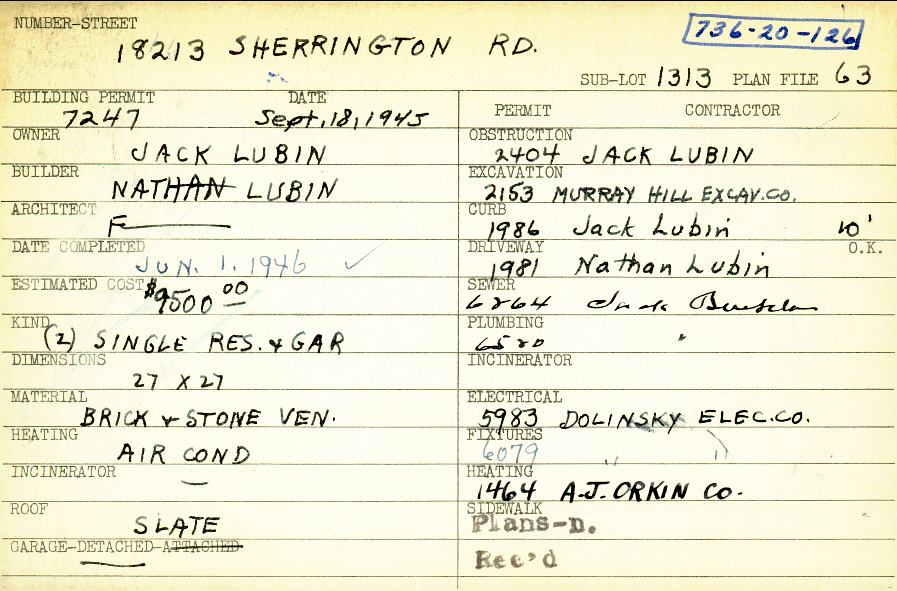 NUMBER-STREET
18213 SHERRINGTON RD.
736-20-126
SUB-LOT 1313 PLAN FILE 63
BUILDING PERMIT DATE
7247 Sept, 18, 1945
OWNER
JACK LUBIN
BUILDER
NATHAN LUBIN
ARCHITECT
F
DATE COMPLETED
JUN. 1. 1946 ✓
ESTIMATED COST
$9500 00
KIND
(2) SINGLE RES. & GAR
DIMENSIONS
27 X 27
MATERIAL
BRICK & STONE VEN.
HEATING
AIR COND
INCINERATOR
—
ROOF
SLATE
GARAGE-DETACHED-ATTACHED
PERMIT CONTRACTOR
OBSTRUCTION
2404 JACK LUBIN
EXCAVATION
2153 MURRAY HILL EXCAV. CO.
CURB
1986 Jack Lubin 10'
DRIVEWAY O.K.
1981 Nathan Lubin
SEWER
6264 Jack
PLUMBING
"
INCINERATOR
ELECTRICAL
5983 DOLINSKY ELEC. CO.
FIXTURES
6079 " "
HEATING
1464 A.J. ORKIN CO.
SIDEWALK
Plans-n.
Rec'd